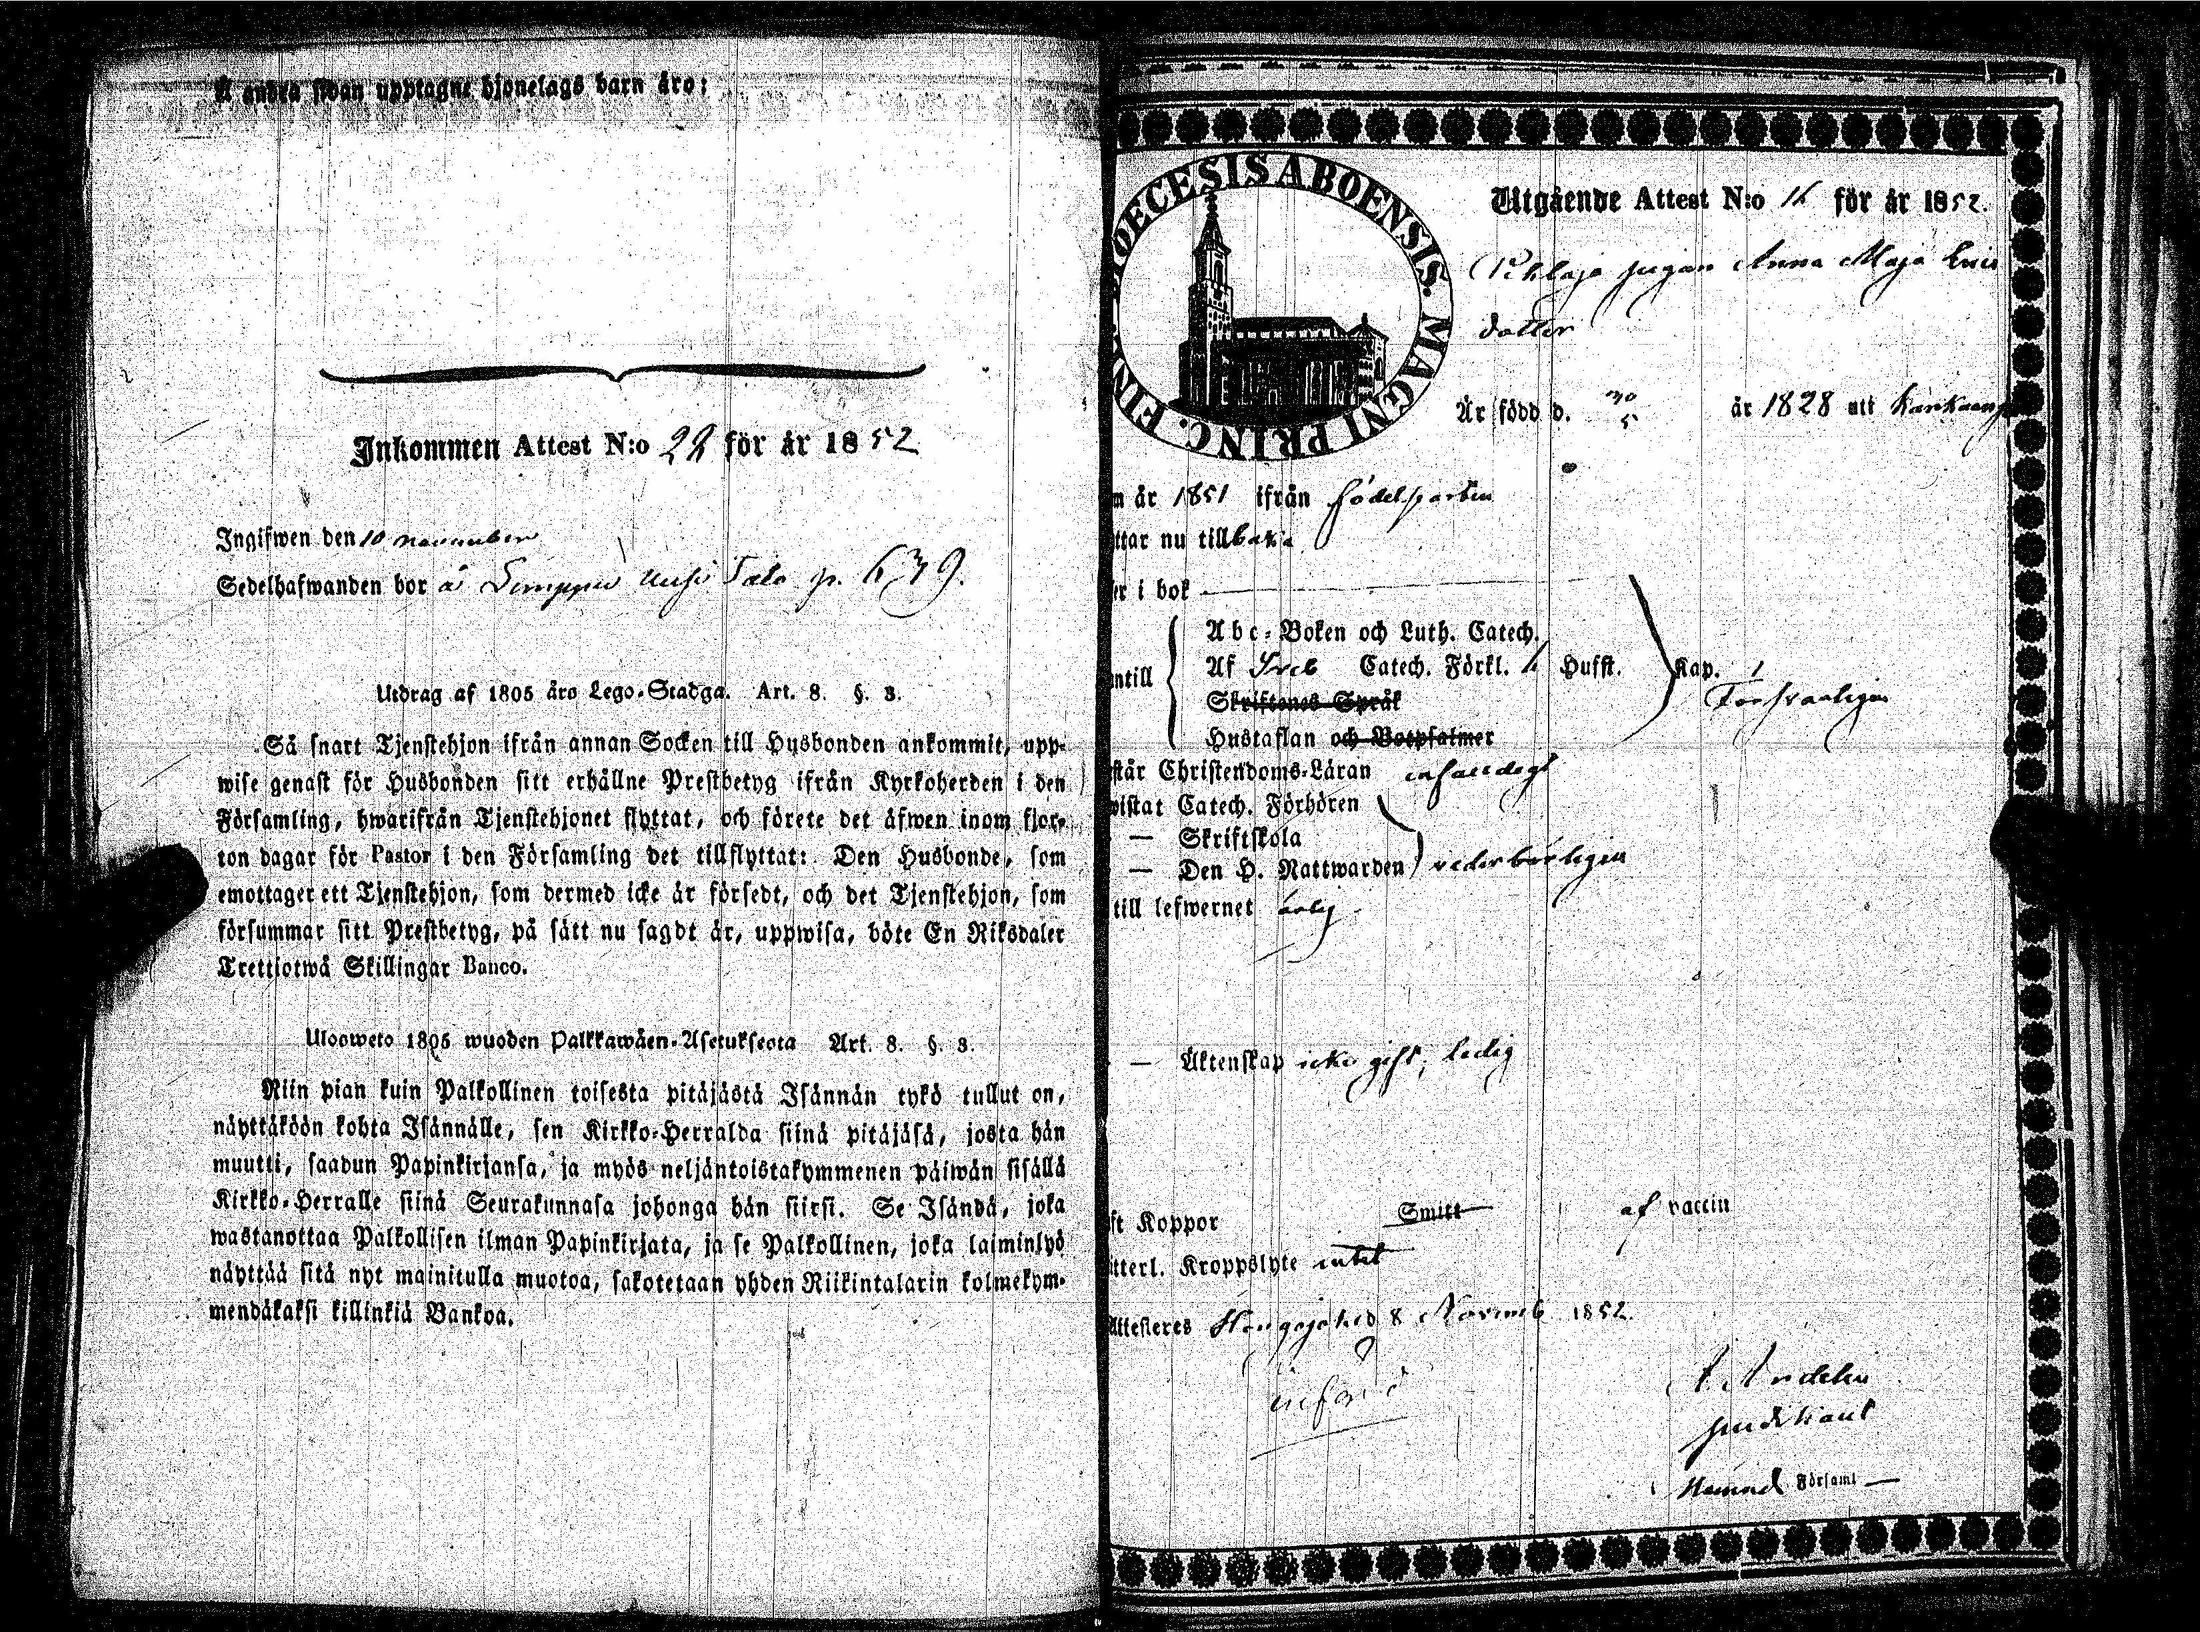 Å andra sidan upptagne hjonelags barn äro:
Inkommen Attest N:o 22 för år 1852
Ingifwen den 10 november
Sedelhafwanden bor å Uusi Talo p. 639.
Utdrag af 1805 års Lego-Stadga. Art. 8. §. 3.
Så snart Tjenstehjon ifrån annan Socken till Husbonden ankommit, upp-
wise genast för Husbonden sitt erhållne Prestbetyg ifrån Kyrkoherden i den
Församling, hwarifrån Tjenstehjonet flyttat, och förete det äfwen inom fjor-
ton dagar för Pastor i den Församling det tillflyttat: Den Husbonde, som
emottager ett Tjenstehjon, som dermed icke är försedt, och det Tjenstehjon, som
försummar sitt Prestbetyg, på sätt nu sagdt är, uppwisa, böte En Riksdaler
Trettiotwå Skillingar Banco.
Ulosweto 1805 wuoden Palkkawäen-Asetuksesta Art. 8. §. 3.
Niin pian kuin Palkollinen toisesta pitäjästä Isännän tykö tullut on,
näyttäköön kohta Isännälle, sen Kirkko-Herralda siinä pitäjäsä, josta hän
muutti, saadun Papinkirjansa, ja myös neljäntoistakymmenen päiwän sisällä
Kirkko-Herralle siinä Seurakunnasa johonga hän siirsi. Se Isändä, joka
wastanottaa Palkollisen ilman Papinkirjata, ja se Palkollinen, joka laiminlyö
näyttää sitä nyt mainitulla muotoa, sakotetaan yhden Riikintalarin kolmekym-
mendäkaksi killinkiä Bankoa.
DIOECESIS ABOENSIS. MAGNI PRINC. FIN
Utgående Attest N:o 16 för år 1852.
pigan Anna Maja Eric
dotter
Är född d. 30/5 år 1828 uti Kankaanp
n år 1851 ifrån födelsporten
ttar nu tillbaka
er i bok
Abc-Boken och Luth. Catech.
ntill Af Sveb Catech. Förkl. 6 Hufst. Kap. 1
Skriftenes Språk Försvarligen
Hustaflan och Botpsalmer
står Christendoms-Läran
wistat Catech. Förhören
— Skriftskola
— Den H. Nattwarden vederbörligen
till lefwernet ärlig
— Äktenskap icke gift; ledig
ft Koppor Smitt af vaccin
tterl. Kroppslyte intet
Attesteres Hongojoki d 8 Novemb 1852.
införd
A. Andelin
predikant
i Hemmed Församl